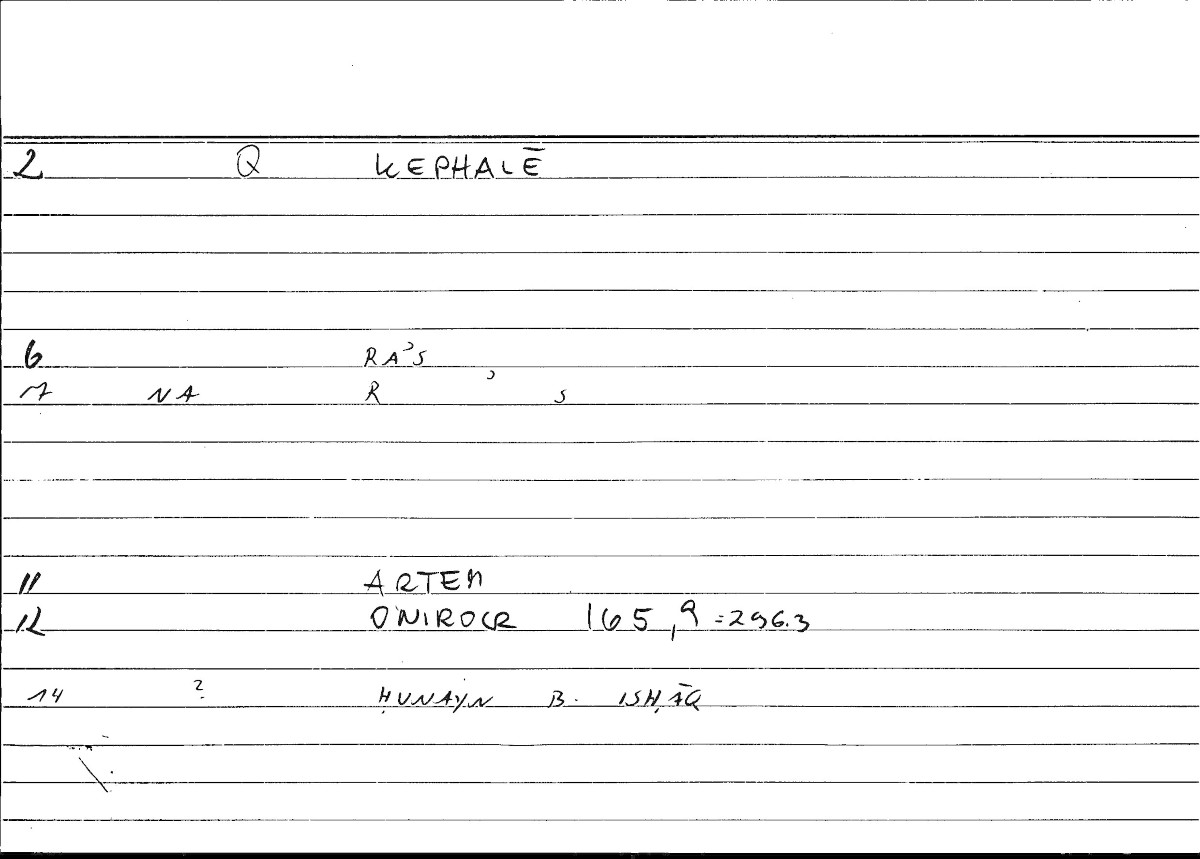 2 Q KEPHALĒ
6 RAʾS
7 NA R ʾ S
11 ARTEM
12 ONIROCR 165,9 =296.3
14 ? ḤUNAYN B. ISḤĀQ